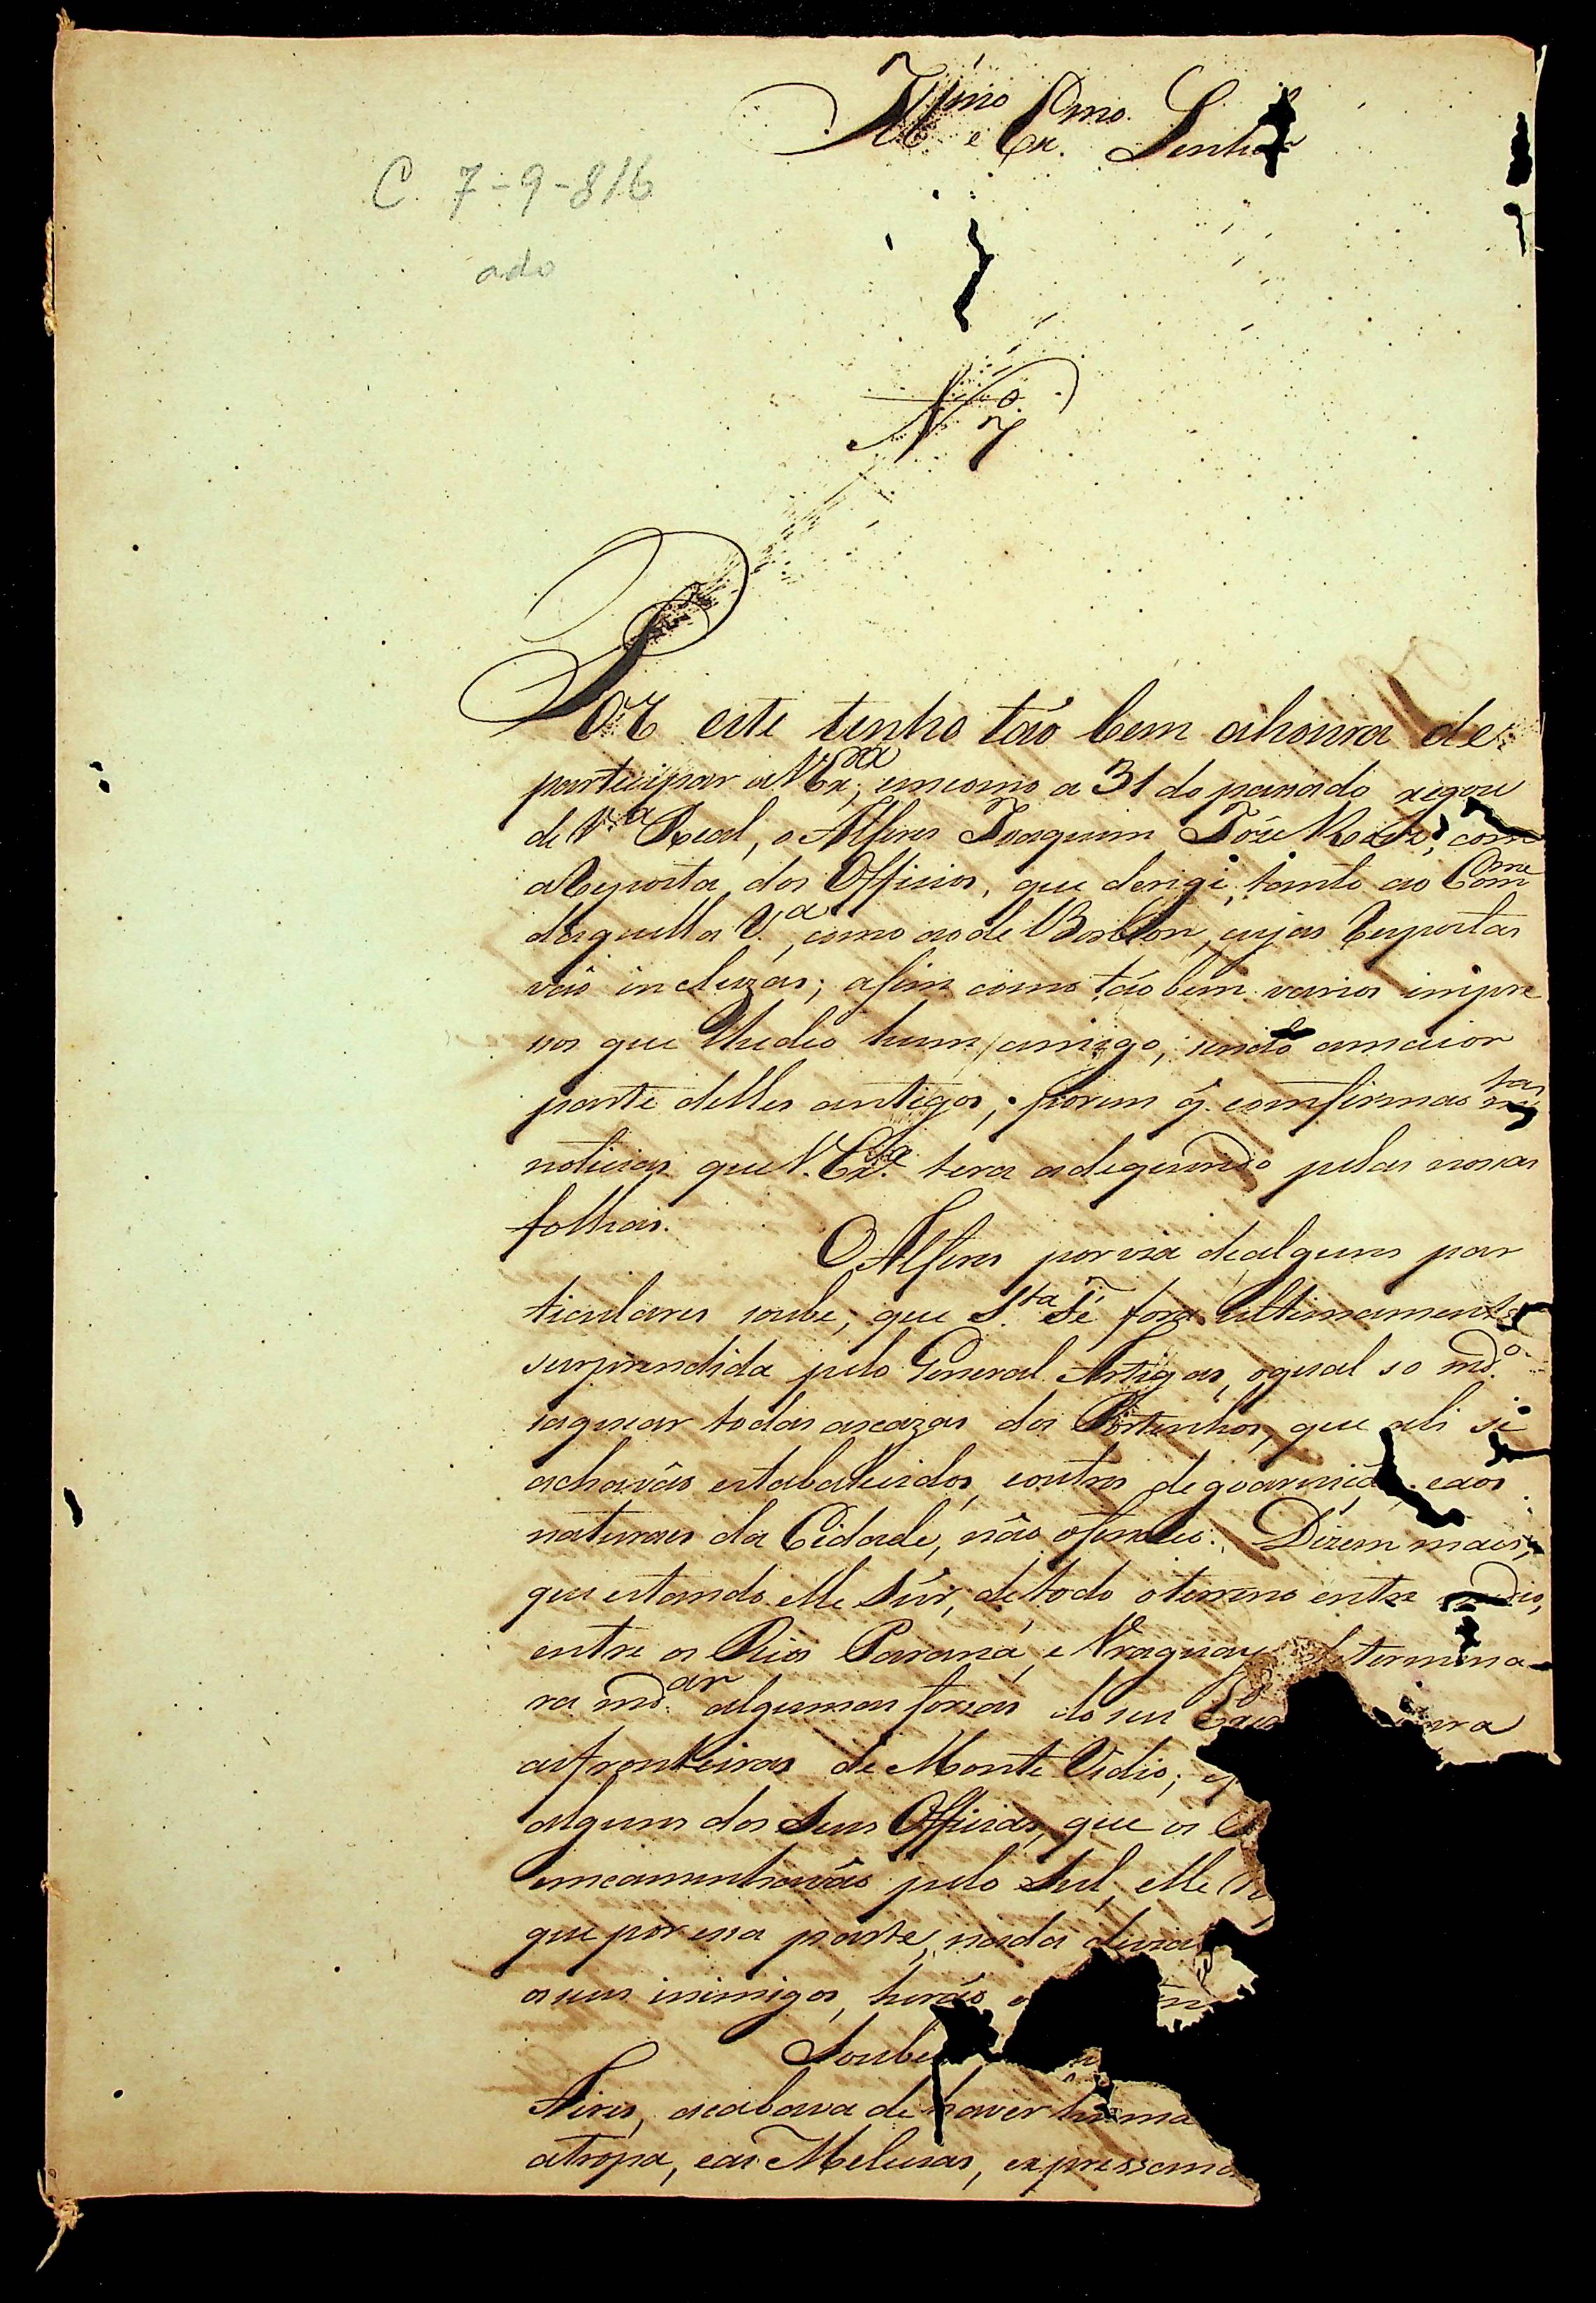 Illmo e Exmo. Senhor
C. 7-9-816
ado
No 7
Por este tenho tão bem ahonra de
participar a V Exa, emcomo a 31 do passado xegou
de Va Real, o Alferes Joaquim Jôze com
aResposta dos Officios, que derigi, tanto ao Comme
daquella V.a, como aode Borbon, cujas Respostas
vão incluzas; asim como tão bem varios impre
sos que lhedeo hum amigo, sendo amaior
parte delles antigos, porem q. comfirmas
noticias que V. Exa. tera adequerido pelas nosas
folhas.
O Alferes por via dealguns par
ticulares soube, que S.ta Fé fora ultimamente
surprendida pelo General Artigas, oqual so mdo.
saquear todas ascazas dos Portenhos, que ali se
achavão estabalecidos, eoutros de goarnição, eaos
naturaes da Cidade, não ofendeo. Dizem mais,
que estando elle Súr, detodo oterreno entre
entre os Rios Paraná, e Uraguay determina
ra mdar algumas forsas do seu para
asfronteiras de Monte Vidio;
alguns dos Seus Officiaes, que os
emcaminhavão pelo Sul, elle
que por essa parte, nada
oseus inimigos, herão
Soube
Aires, acabava de haver huma
atropa, eas Melicias,